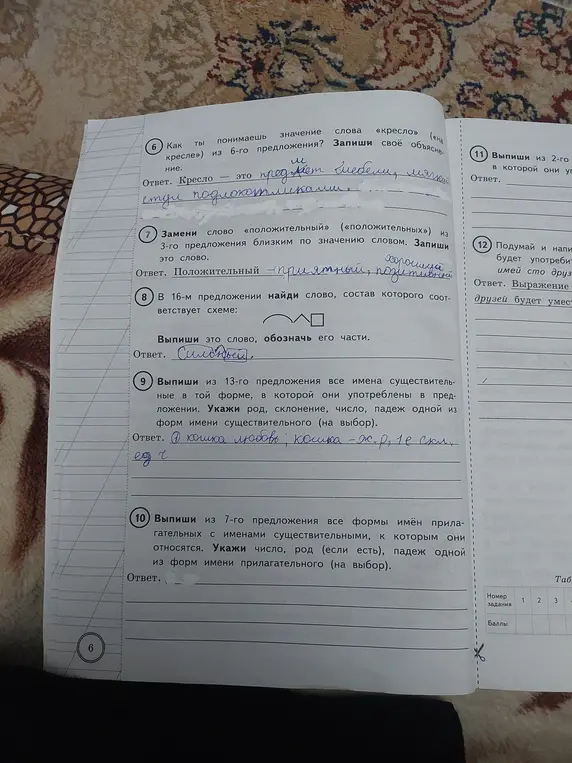 6 Как ты понимаешь значение слова «кресло» («на
кресле») из 6-го предложения? Запиши своё объясне-
ние.
Ответ. Кресло — это предмет мебели, мягкой
подлокотниками.
7 Замени слово «положительный» («положительных») из
3-го предложения близким по значению словом. Запиши
это слово.
хороший
Ответ. Положительный – приятный, позитивный
8 В 16-м предложении найди слово, состав которого соот-
ветствует схеме:
Выпиши это слово, обозначь его части.
Ответ. Сильный.
9 Выпиши из 13-го предложения все имена существитель-
ные в той форме, в которой они употреблены в пред-
ложении. Укажи род, склонение, число, падеж одной из
форм имени существительного (на выбор).
Ответ. кошка любовь; кошка – ж. р, 1е скл.
ед ч
10 Выпиши из 7-го предложения все формы имён прила-
гательных с именами существительными, к которым они
относятся. Укажи число, род (если есть), падеж одной
из форм имени прилагательного (на выбор).
Ответ.
6
11 Выпиши из 2-го
в которой они
Ответ.
12 Подумай и напи
будет употреби
имей сто друз
Ответ. Выражение
друзей будет умес
Таб
Номер задания 1 2 3
Баллы